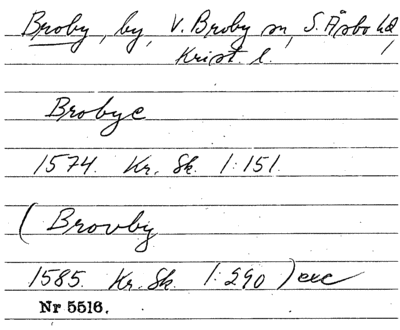 Broby, by, V. Broby sn, S. Åsbo hd,
Krist. l.
Brobye
1574. Kr. Sk. 1:151.
(Brovby
1585. Kr. Sk. 1:290) exc
Nr 5516.